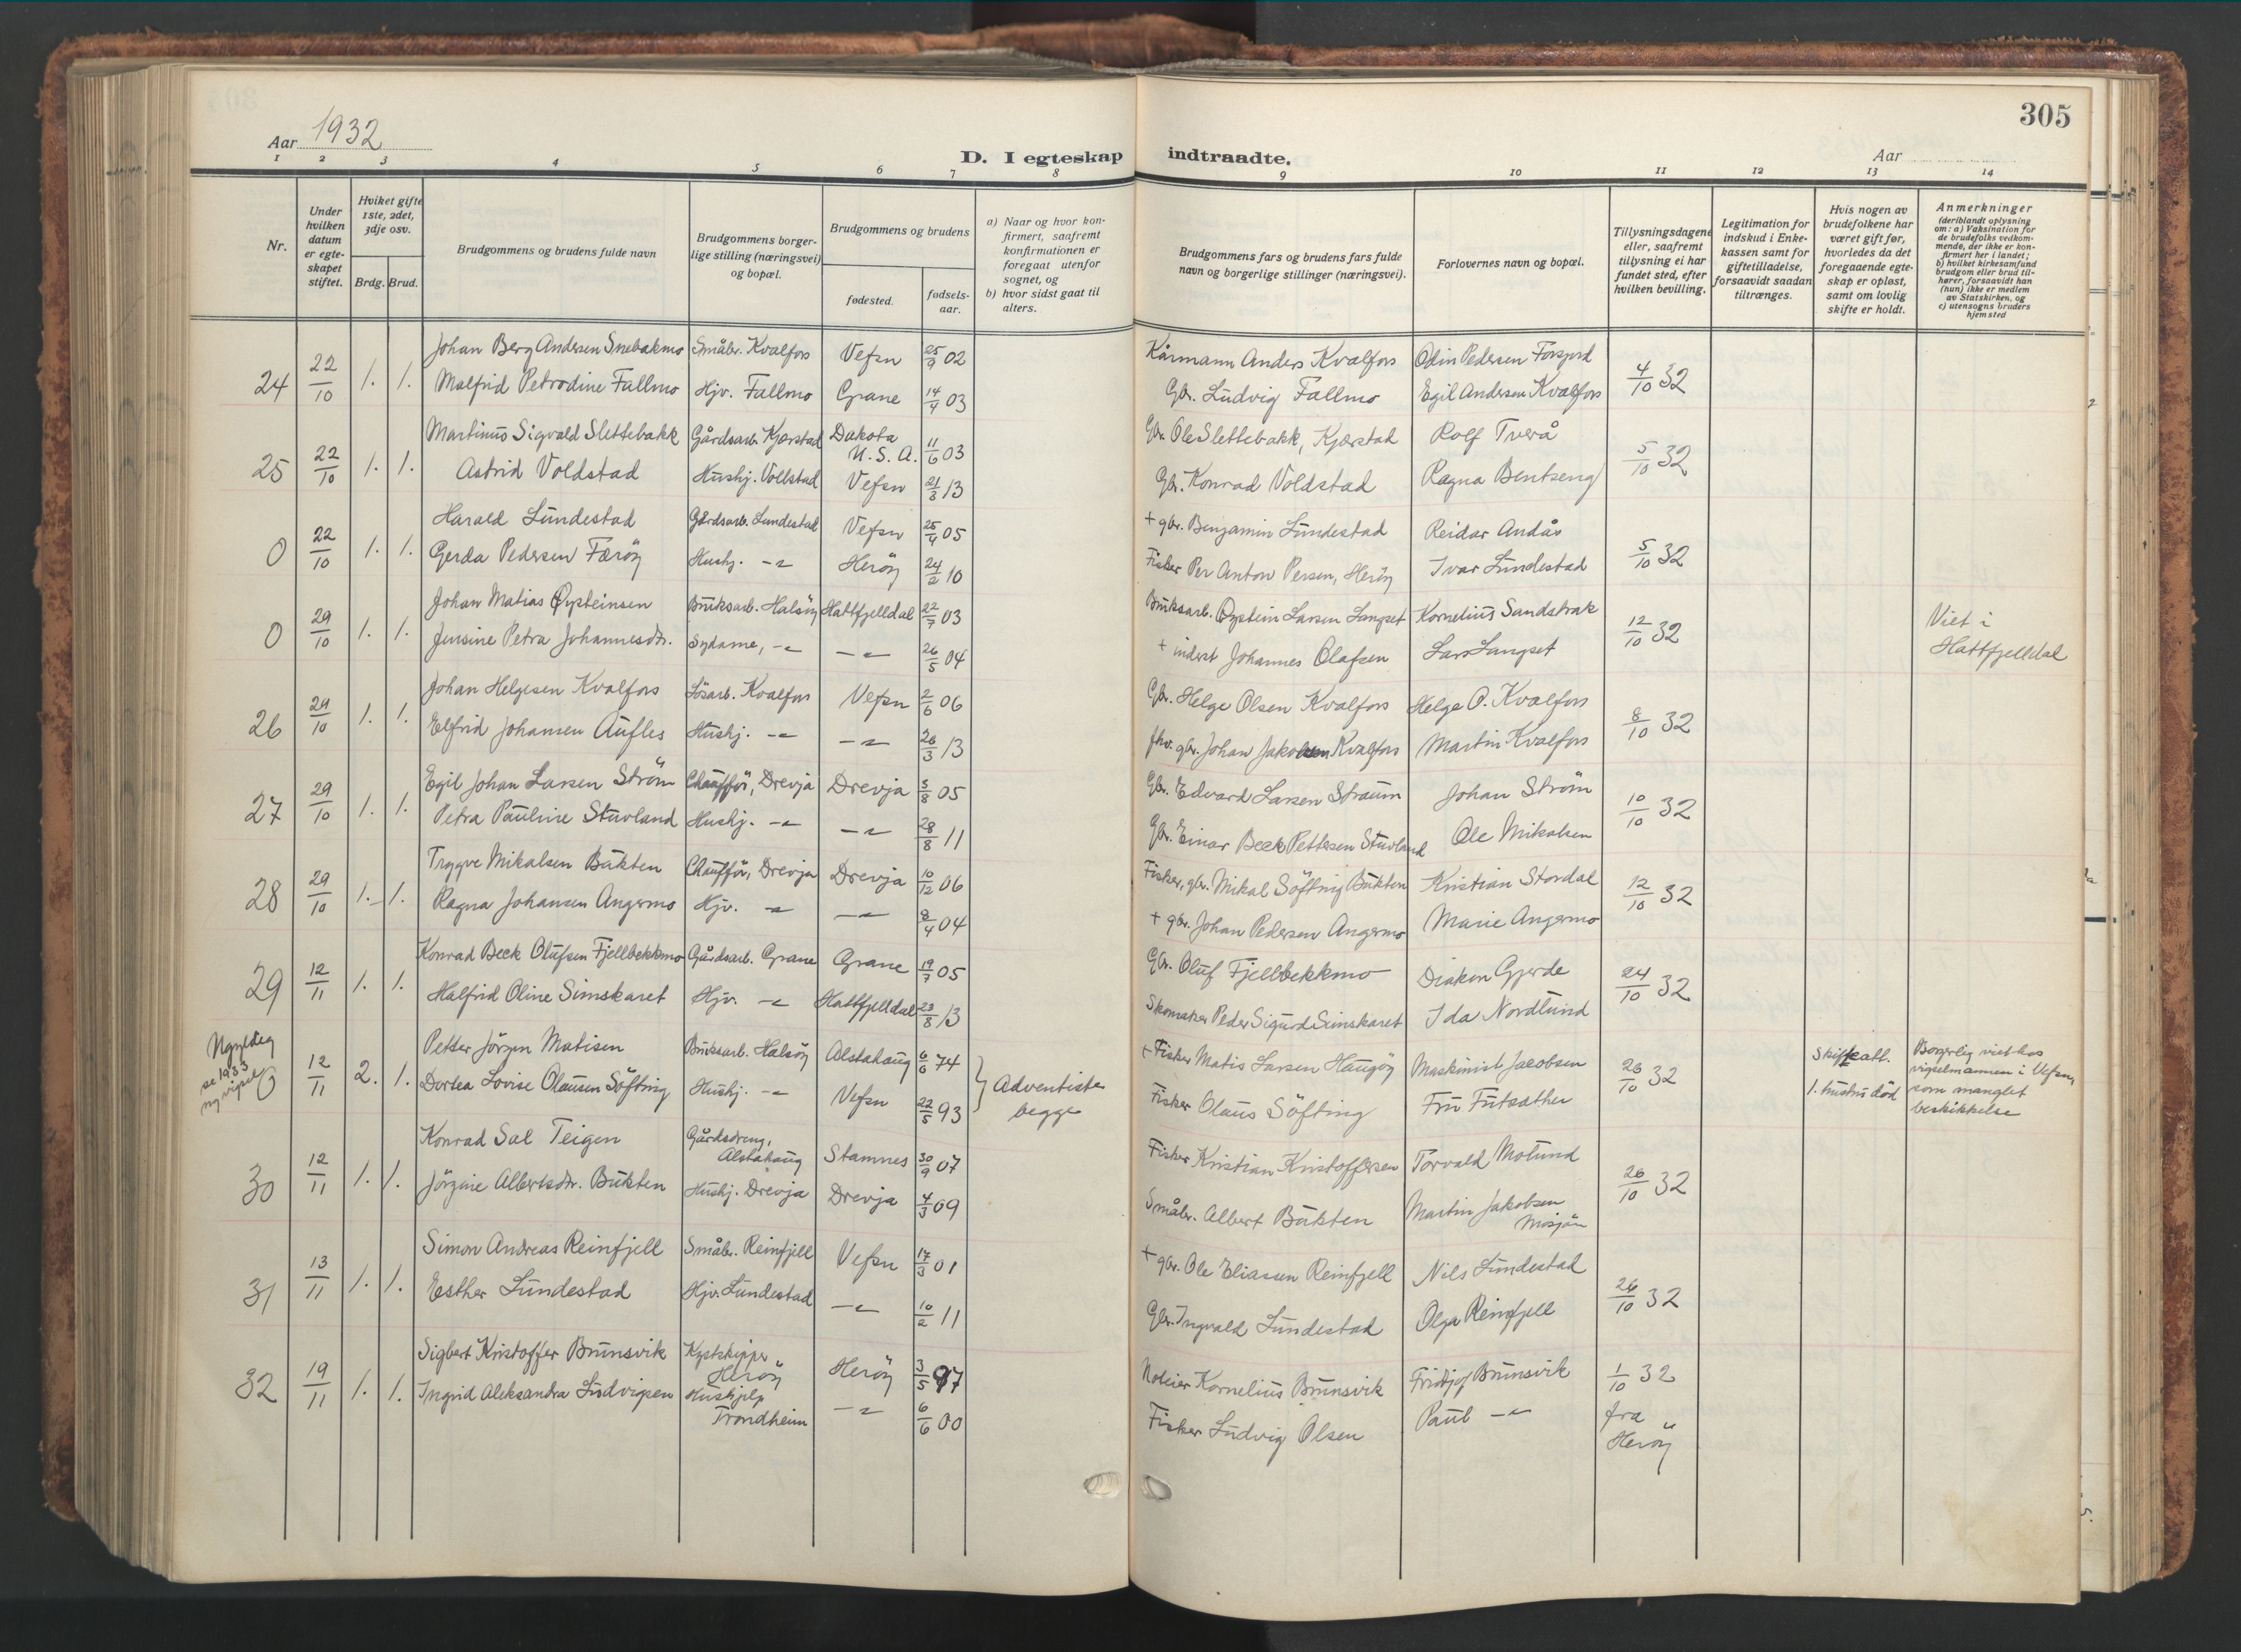 305
Aar 1932
D. I egteskap indtraadte.
Aar
1 2 3 4 5 6 7 8 9 10 11 12 13 14
Nr.
Under hvilken datum er egte- skapet stiftet.
Hviket gifte 1ste, 2det, 3dje osv.
Brdg. Brud.
Brudgommens og brudens fulde navn
Brudgommens borger- lige stilling (næringsvei) og bopæl.
Brudgommens og brudens
fødested.
fødsels- aar.
a) Naar og hvor kon- firmert, saafremt konfirmationen er foregaat utenfor sognet, og
b) hvor sidst gaat til alters.
Brudgommens fars og brudens fars fulde navn og borgerlige stillinger (næringsvei).
Forlovernes navn og bopæl.
Tillysningsdagene eller, saafremt tillysning ei har fundet sted, efter hvilken bevilling.
Legitimation for indskud i Enke- kassen samt for giftetilladelse, forsaavidt saadan tiltrænges.
Hvis nogen av brudefolkene har været gift før, hvorledes da det foregaaende egte- skap er opløst, samt om lovlig skifte er holdt.
Anmerkninger (deriblandt oplysning om: a) Vaksination for de brudefolks vedkom- mende, der ikke er kon- firmert her i landet; b) hvilket kirkesamfund brudgom eller brud til- hører, forsaavidt han (hun) ikke er medlem av Statskirken, og c) utensogns bruders hjemsted
24 22/10 1. 1. Johan Berg Andersen Snebakmo Småbr. Kvalfors Vefsn 25/9 02 Kårmann Anders Kvalfors Odin Pedersen Forsjord 4/10 32
Malfrid Petrodine Fallmo Hjv. Fallmo Grane 14/4 03 Gbr. Ludvig Fallmo Egil Andersen Kvalfors
25 22/10 1. 1. Martinus Sigvald Slettebakk Gårdsarb. Kjærstad Dakota U.S.A. 11/6 03 Gbr. Ole Slettebakk, Kjærstad Rolf Tverå 5/10 32
Astrid Voldstad Hushj. Vollstad Vefsn 21/3 13 Gbr. Konrad Voldstad Ragna Bentseng
0 22/10 1. 1. Harald Lundestad Gårdsarb. Lundestad Vefsn 25/4 05 + gbr. Benjamin Lundestad Reidar Andås 5/10 32
Gerda Pedersen Færöy Hushj. -"- Heröy 24/2 10 Fisker Per Anton Persen, Heröy Ivar Lundestad
0 29/10 1. 1. Johan Matias Øysteinsen Bruksarb. Halsöy Hattfjelldal 22/7 03 Bruksarb. Øystein Larsen Langset Kornelius Sandstrak 12/10 32 Viet i
Jensine Petra Johannesdtr. Sydame, -"- -"- 26/5 04 + inderst Johannes Olafsen Lars Langset Hattfjelldal
26 29/10 1. 1. Johan Helgesen Kvalfors Lösarb. Kvalfors Vefsn 2/6 06 Gbr. Helge Olsen Kvalfors Helge O. Kvalfors 8/10 32
Elfrid Johansen Aufles Hushj. -"- -"- 26/3 13 fhv. gbr. Johan Jakobsen Kvalfors Martin Kvalfors
27 29/10 1. 1. Egil Johan Larsen Ström Chaufför, Drevja Drevja 5/8 05 Gbr. Edvard Larsen Straum Johan Ström 10/10 32
Petra Pauline Stuvland Hushj. -"- -"- 28/8 11 Gbr. Einar Beck Pettersen Stuvland Ole Mikalsen
28 29/10 1. 1. Trygve Mikalsen Bukten Chaufför, Drevja Drevja 10/12 06 Fisker, gbr. Mikal Söfting Bukten Kristian Stordal 12/10 32
Ragna Johansen Angermo Hjv. -"- -"- 8/4 04 + gbr. Johan Pedersen Angermo Marie Angermo
29 12/11 1. 1. Konrad Beck Olufsen Fjellbekkmo Gårdsarb. Grane Grane 19/7 05 Gbr. Oluf Fjellbekkmo Diakon Gjerde 24/10 32
Halfrid Oline Simskaret Hjv. -"- Hattfjelldal 23/8 13 Skomaker Peder Sigurd Simskaret Ida Nordlund
Ugyldig se 1933 ny vigsel
0 12/11 2. 1. Petter Jörgen Matisen Bruksarb. Halsöy Alstahaug 6/6 74 Adventister + Fisker Matis Larsen Haugöy Maskinist Jacobsen 26/10 32 Skifteatt. Borgerlig viet hos vigselmannen i Vefsn,
Dortea Lovise Olausen Söfting Hushj. -"- Vefsn 22/5 93 begge Fisker Olaus Söfting Fru Futsæther 1. hustru död som manglet beskikkelse
30 12/11 1. 1. Konrad Sal Teigen Gårdsdreng, Alstahaug Stamnes 30/9 07 Fisker Kristian Kristoffersen Torvald Motund 26/10 32
Jörgine Albertsdtr. Bukten Hushj. Drevja Drevja 4/3 09 Småbr. Albert Bukten Martin Jakobsen Mosjöen
31 13/11 1. 1. Simon Andreas Reinfjell Småbr. Reinfjell Vefsn 17/3 01 + gbr. Ole Eliassen Reinfjell Nils Lundestad 26/10 32
Esther Lundestad Hjv. Lundestad -"- 10/2 11 Gbr. Ingvald Lundestad Olga Reinfjell
32 19/11 1. 1. Sigbert Kristoffer Brunsvik Kystskipper Heröy Heröy 3/5 97 Noteier Kornelius Brunsvik Fridtjof Brunsvik 1/10 32
Ingrid Aleksandra Ludvigsen Hushjelp Trondheim -"- 6/6 00 Fisker Ludvig Olsen Paul -"- fra Heröy